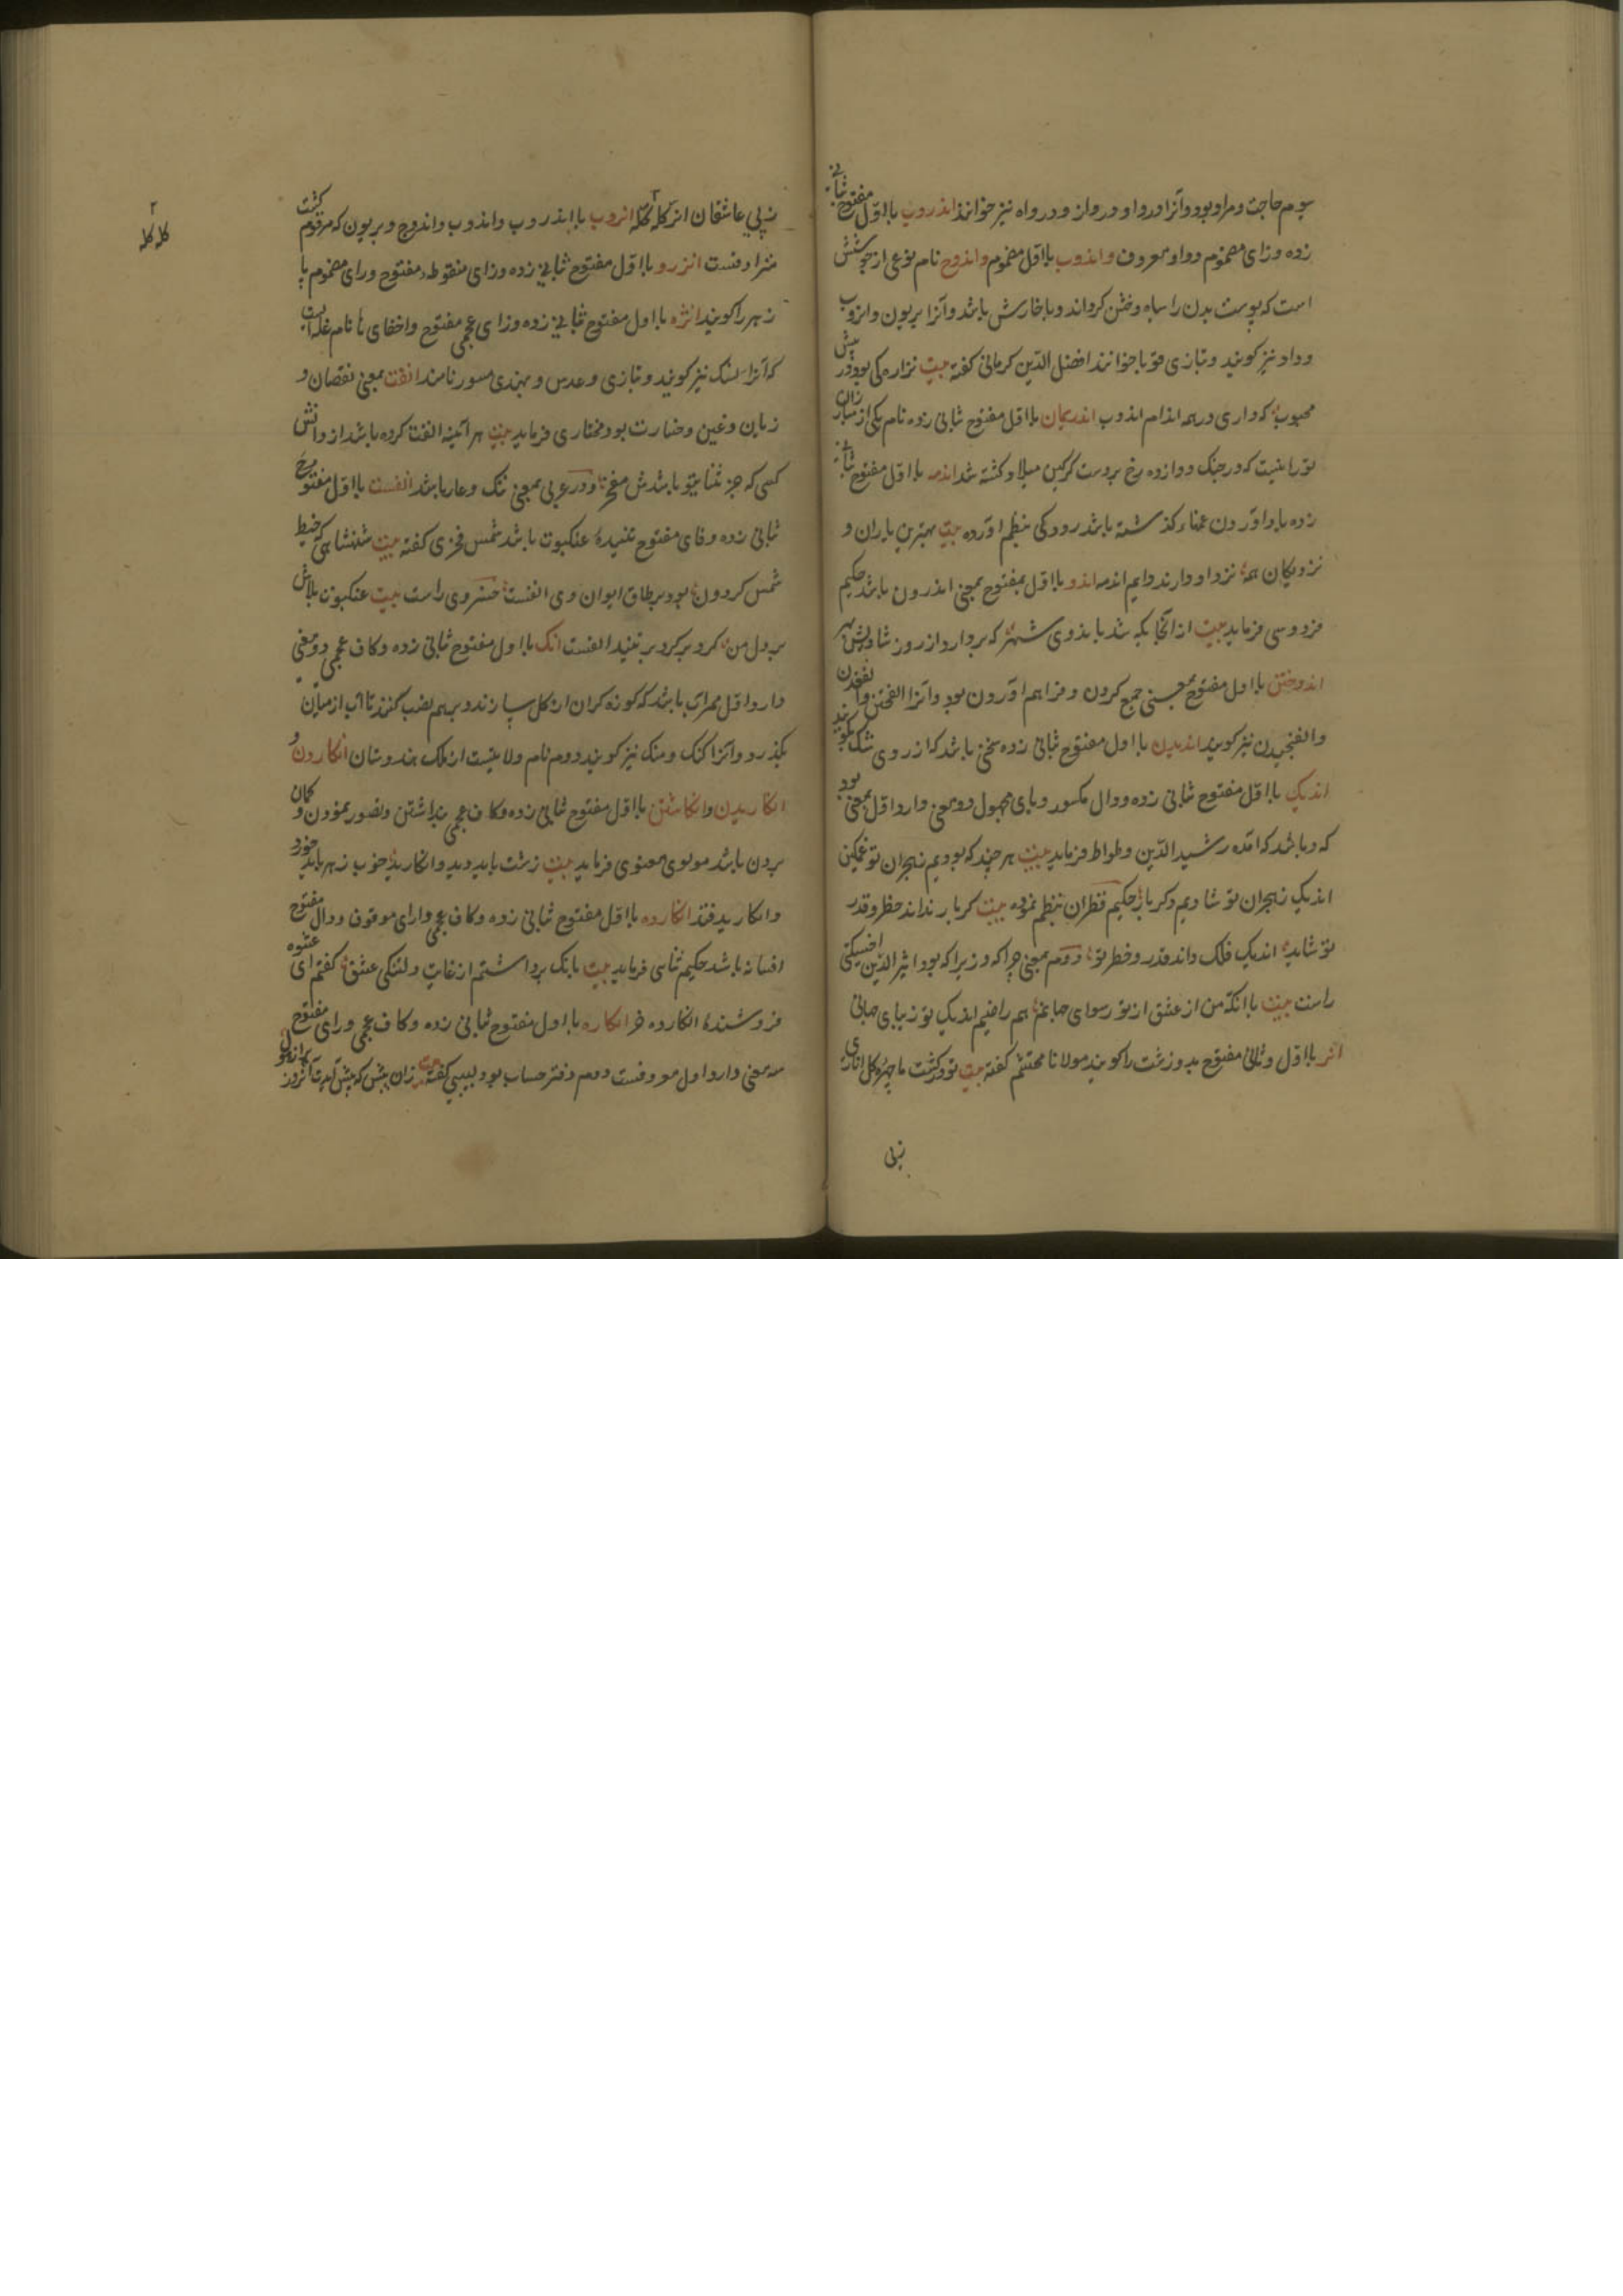 سوم حاجت و مراد بود و آنرا دروا و درواز و درواه نیز خوانند اندروب با اول مفتوح ثانی
زده و زای مضموم و واو معروف و اندوب با اول مضموم و اندوج نام نوعی از جوشش
است که پوست بدن را سیاه و خشن گرداند و با خارش باشد و آنرا بریون و انروب
و داد نیز گویند و بتازی قوبا خوانند افضل الدین کرمانی گفته بیت بود در پیش
محبوب که داری در همه اندام اندوب اندریمان با اول مفتوح ثانی زده نام یکی از مبارزان
تورانیست که در جنگ دوازده رخ بر دست گرگین میلاد کشته شد اندمه با اول مفتوح ثانی
زده یاد آوردن غمهاء گذشته باشد رودکی بنظم آورده بیت بهترین یاران و
نزدیکان همه نزد او دارند دایم اندمه اندو با اول مفتوح بمعنی اندرون باشد حکیم
فردوسی فرماید بیت از آنجایکه شد باندوی شهر که بردارد از روز شادیش بهر
اندوختن با اول مفتوح بمعنی جمع کردن و فراهم آوردن بود و آنرا الفختن و الفغدن
و الفنجیدن نیز گویند اندیدن با اول مفتوح ثانی زده سخنی باشد که از روی شک گویند
اندیک با اول مفتوح ثانی زده و دال مکسور و یای مجهول دو معنی دارد اول بمعنی بود
که و باشد که آمده رشید الدین وطواط فرماید بیت هر چند که بودیم ز هجران تو غمگین
اندیک ز هجران تو شادیم دگر بار حکیم قطران بنظم نموده بیت گر یار نداند خطر و قدر
تو شاید اندیک فلک داند قدر و خطر تو دوم بمعنی چرا که و زیرا که بود اثیر الدین اخسیکتی
راست بیت با آنکه من از عشق از تو رسوای جهانم هم راضیم اندیک تو زیبای جهانی
انر با اول و ثانی مفتوح بد و زشت را گویند مولانا محتشم گفته بیت ما چهره گل اناری
زنی
زپی عاشقان انر کله کله انروب با اندروب و اندوب و اندوج و بریون که مرقوم گشت
مترادفست انزرو با اول مفتوح ثانی زده و زای منقوطه مفتوح و رای مضموم
زهر را گویند انژه با اول مفتوح ثانی زده و زای عجمی مفتوح و اخفای ها نام غله ایست
که آنرا نسک نیز گویند و بتازی عدس و بهندی مسور نامند انفت بمعنی نقصان و
زیان و غبن و خسارت بود مختاری فرماید بیت هر آئینه انفت کرده باشد از دانش
کسی که جز ثنا تو باشدش مفخر و در عربی بمعنی ننگ و عار باشد انفست با اول مفتوح
ثانی زده و فای مفتوح تنیدهٔ عنکبوت باشد شمس فخری گفته بیت شهنشاهی که خیط
شمس گردون بود بر طاق ایوان وی انفست خسروی راست بیت عنکبوت بلاش
بر دل من گرد بر گرد بر تنید انفست انگ با اول مفتوح ثانی زده و کاف عجمی دو معنی
دارد اول باشد که کوزه گران از گل سازند و بهم نصب کنند تا آب از میان
بگذرد و آنرا کنگ و منگ نیز گویند دوم نام ولایتیست از ملک هندوستان انگاردن و
انگاریدن و انگاشتن با اول مفتوح ثانی زده و کاف عجمی پنداشتن و تصور نمودن و گمان
بردن باشد مولوی معنوی فرماید بیت زشت باید دید و انگارید خوب زهر باید خورد
و انگارید قند انگارده با اول مفتوح ثانی زده و کاف عجمی و رای موقوف و دال مفتوح
افسانه باشد حکیم ثنای فرماید بیت بانگ برداشتم از غایت دلتنگی عشق گفتم ای عشوه
فروشندهٔ انگارده خر انگاره با اول مفتوح ثانی زده و کاف عجمی و رای مفتوح
سه معنی دارد اول دوم دفتر حساب بود لبیبی گفته بیت زان پیش که پیش آیدت آنروز پر از هول
کله کله